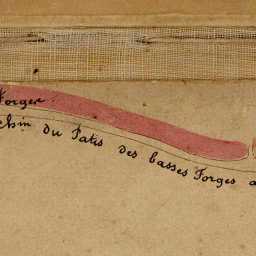 Forger
chin du Patis des basses Forges a